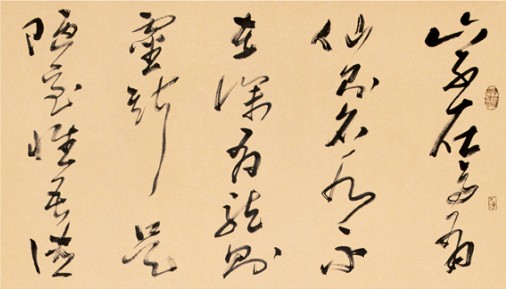 山不在高有
仙則名水不
在深有龍則
靈斯是
陋室惟吾德